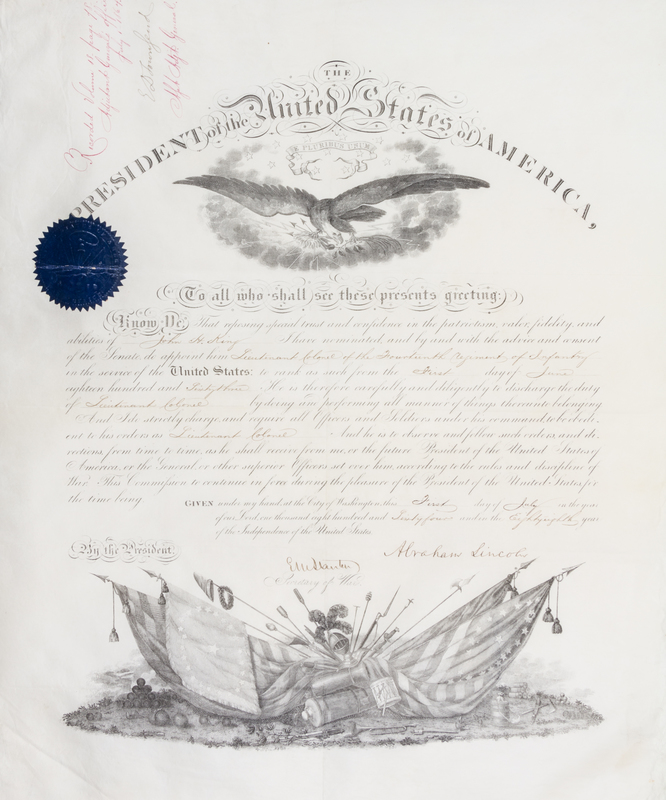 Recorded Volume
Adjutant General's Office
E D Townsend
Asst Adjt General
THE
PRESIDENT of the United States of AMERICA,
E PLURIBUS UNUM
To all who shall see these presents greeting:
Know Ye, That reposing special trust and confidence in the patriotism, valor, fidelity, and
abilities of John H. King I have nominated, and by and with the advice and consent
of the Senate, do appoint him Lieutenant Colonel of the Fourteenth Regiment of Infantry
in the service of the United States: to rank as such from the First day of June
eighteen hundred and Sixty three. He is therefore carefully and diligently to discharge the duty
of Lieutenant Colonel by doing and performing all manner of things thereunto belonging.
And I do strictly charge, and require all Officers and Soldiers under his command, to be obedi-
ent to his orders as Lieutenant Colonel And he is to observe and follow such orders, and di-
rections from time to time, as he shall receive from me, or the future President of the United States of
America, or the General or other superior Officers set over him, according to the rules and discipline of
War. This Commission to continue in force during the pleasure of the President of the United States for
the time being.
GIVEN under my hand, at the City of Washington, this First day of July in the year
of our Lord, one thousand eight hundred and Sixty four and in the Eighty ninth year
of the Independence of the United States.
By the President:
Abraham Lincoln
Edwin M Stanton
Secretary of War.